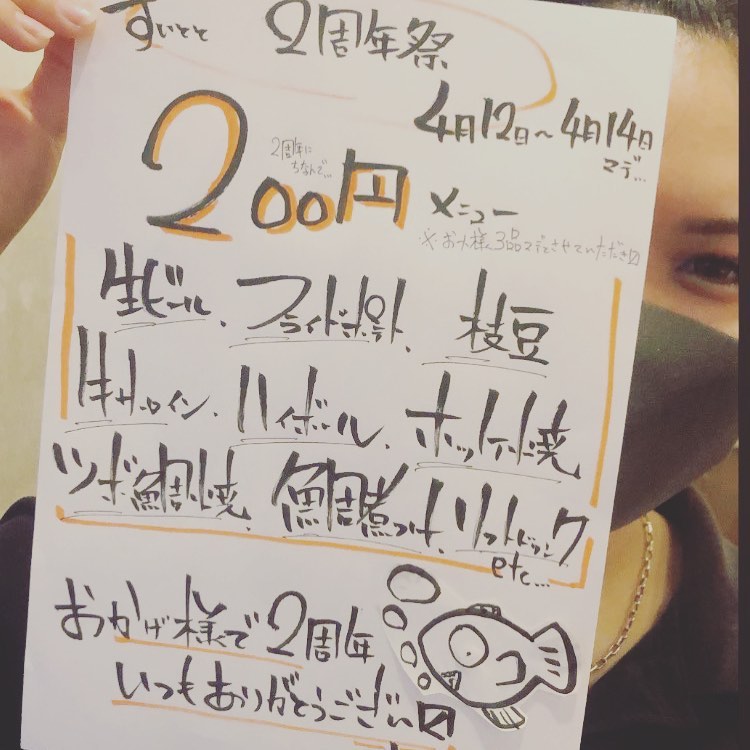 すいとと 2周年祭
4月12日～4月14日
マデ...
2周年に
ちなんで...
200円 メニュー
※お1人様3品マデとさせていただき〼
生ビール、フライドポテト、枝豆
牛サーロイン、ハイボール、ホッケ焼
ツボ鯛焼、鯛煮つけ、ソフトドリンク
etc...
おかげ様で2周年
いつもありがとうござい〼